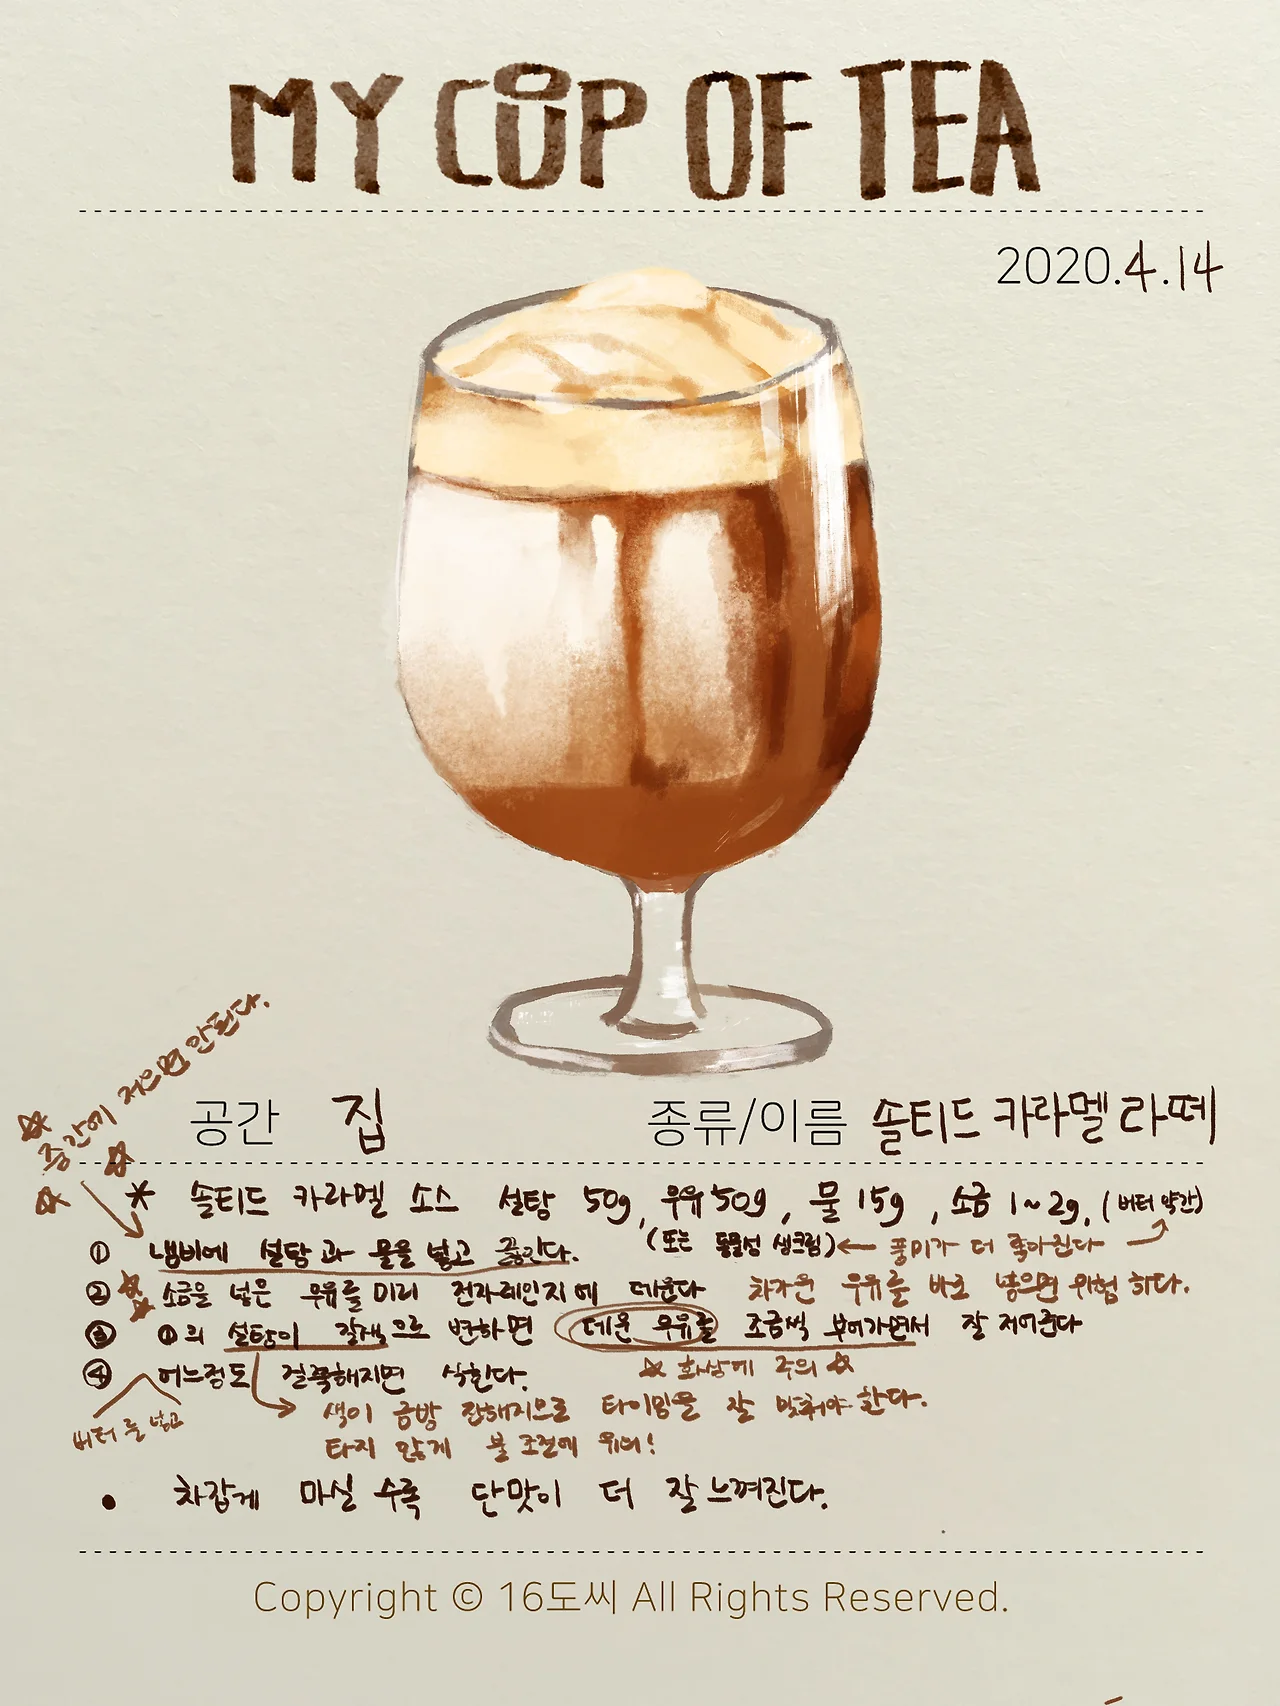 MY CUP OF TEA
2020.4.14
중간에 저으면 안된다.
공간 집 종류/이름 솔티드 카라멜 라떼
* 솔티드 카라멜 소스 설탕 50g, 우유 50g, 물 15g, 소금 1~2g, (버터 약간)
(또는 동물성 생크림) ← 풍미가 더 좋아진다
① 냄비에 설탕과 물을 넣고 끓인다.
② 소금을 넣은 우유를 미리 전자레인지에 데운다 차가운 우유를 바로 넣으면 위험하다.
③ ①의 설탕이 갈색으로 변하면 데운 우유를 조금씩 부어가면서 잘 저어준다
☆ 화상에 주의 ☆
④ 어느정도 걸쭉해지면 식힌다.
버터를 넣고
색이 금방 진해지므로 타이밍을 잘 맞춰야 한다.
타지 않게 불 조절에 유의!
• 차갑게 마실 수록 단맛이 더 잘 느껴진다.
Copyright © 16도씨 All Rights Reserved.